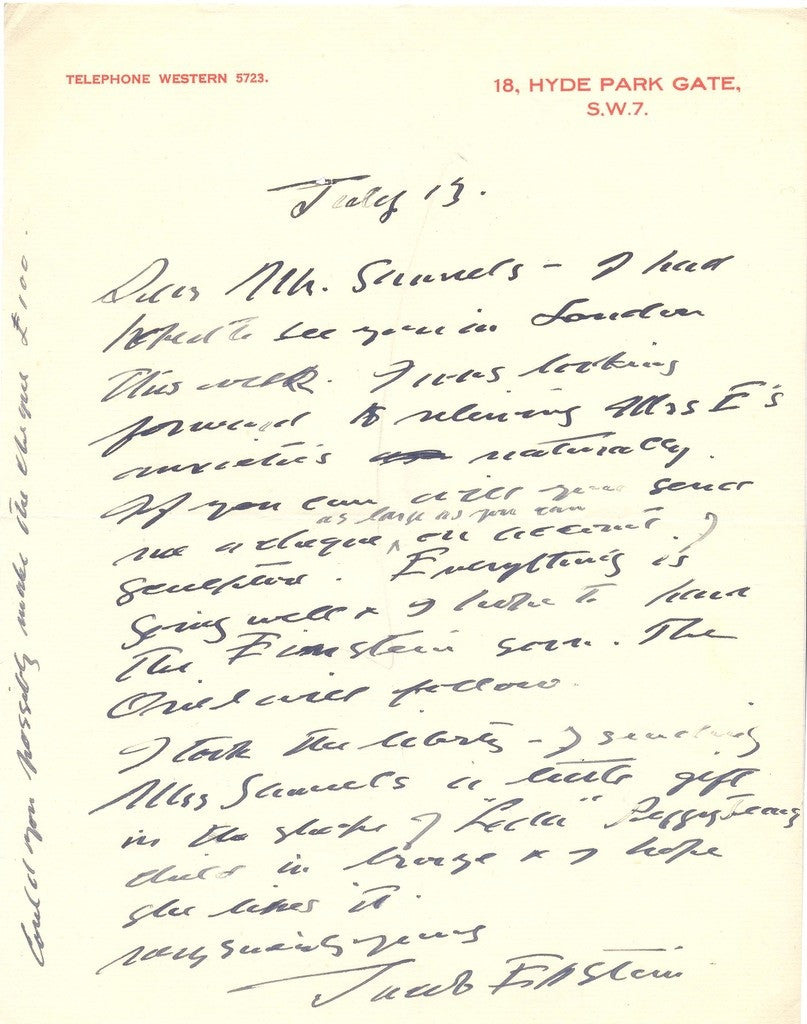 TELEPHONE WESTERN 5723.
18, HYDE PARK GATE,
S.W.7.
July 13.
Dear Mr. Samuels – I had
hoped to see you in London
this week. I was looking
forward to relieving Mrs E's
anxieties naturally.
If you can will you send
as large as you can
me a cheque on account of
sculptor. Everything is
going well & I hope to have
the Einstein soon. The
Oriel will follow.
I took the liberty – of sending
Mrs Samuels a little gift
in the shape of "Leda" Peggy Jean's
child in bronze & I hope
she likes it.
very sincerely yours
Jacob Epstein
Could you possibly make the cheque £100.